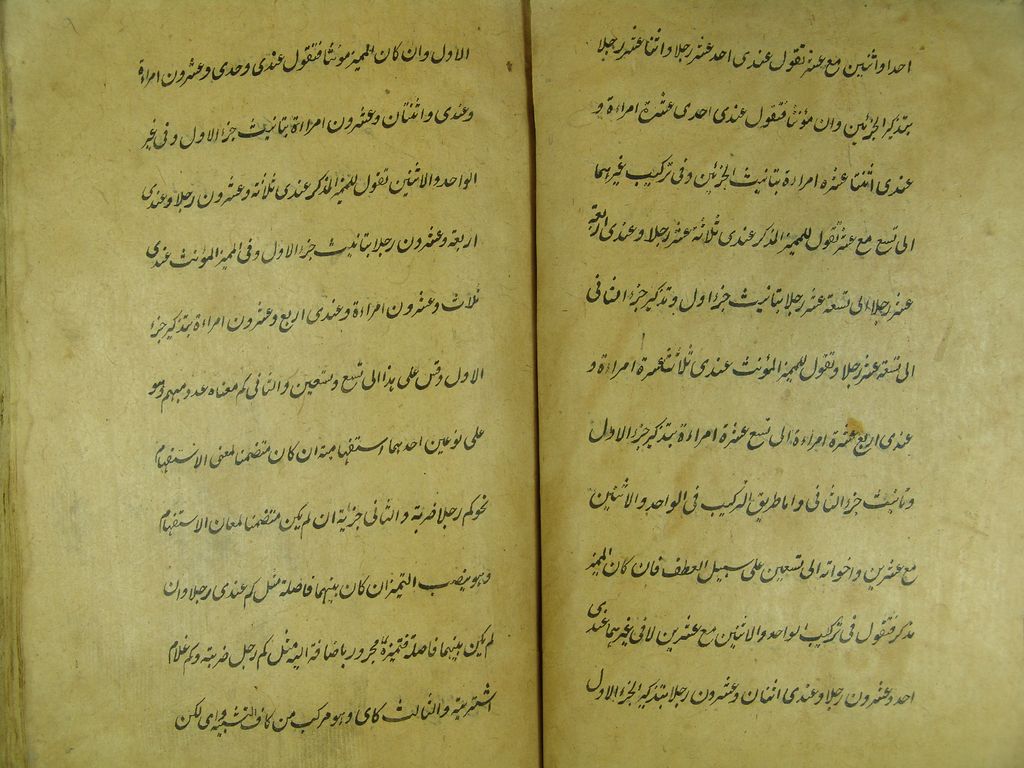 احدا واثنين مع عشر تقول عندى احد عشر رجلا واثنا عشر رجلا
بتذكير الجزئين وان مؤنثا فتقول عندى احدى عشرة امراءة و
عندى اثنتا عشره امراءة بتانيث الجزئين وفى تركيب غيرهما
الى تسع مع عشر تقول للمميز المذكر عندى ثلاثة عشر رجلا وعندى اربعة
عشر رجلا الى تسعة عشر رجلا بتانيث جزء اول وتذكير جزء الثانى
الى تسعة عشر رجلا وتقول للمميز المؤنث عندى ثلاث عشرة امراءة و
عندى اربع عشرة امراءة الى تسع عشرة امراءة بتذكير جزء الاول
وتانيث جزء الثانى واما طريق التركيب فى الواحد والاثنين
مع عشرين واخواته الى تسعين على سبيل العطف فان كان المميز
مذكر فتقول فى تركيب الواحد والاثنين مع عشرين لا فى غيرهما عندى
احد وعشرون رجلا وعندى اثنان وعشرون رجلا بتذكير الجزء الاول
الاول وان كان المميز مؤنثا فتقول عندى وحدى وعشرون امراءة
وعندى واثنتان وعشرون امراءة بتانيث جزء الاول وفى غير
الواحد والاثنين تقول للمميز المذكر عندى ثلاثة وعشرون رجلا وعندى
اربعة وعشرون رجلا بتانيث جزء الاول وفى المميز المؤنث عندى
ثلاث وعشرون امراءة وعندى اربع وعشرون امراءة بتذكير جزء
الاول وقس على هذا الى تسع وتسعين والثانى كم معناه عدد مبهم وهو
على نوعين احدهما استفهامية ان كان متضمنا لمعنى الاستفهام
نحو كم رجلا ضربته والثانى خبرية ان لم يكن متضمنا لمعان الاستفهام
وهو ينصب التميز ان كان بينهما فاصلة مثل كم عندى رجلا وان
لم يكن بينهما فاصلة فتميزه مجرور باضافة اليه مثل كم رجل ضربته وكم غلام
اشتريته والثالث كاى وهو مركب من كاف التشبيه واى لكن